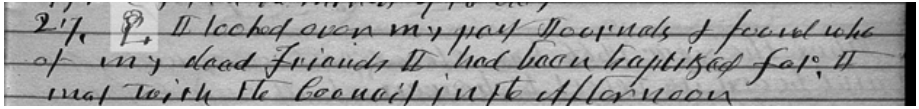 27. P. I looked over my past Journals & found who
of my dead Friends I had been baptized for. I
met with the Council in the afternoon